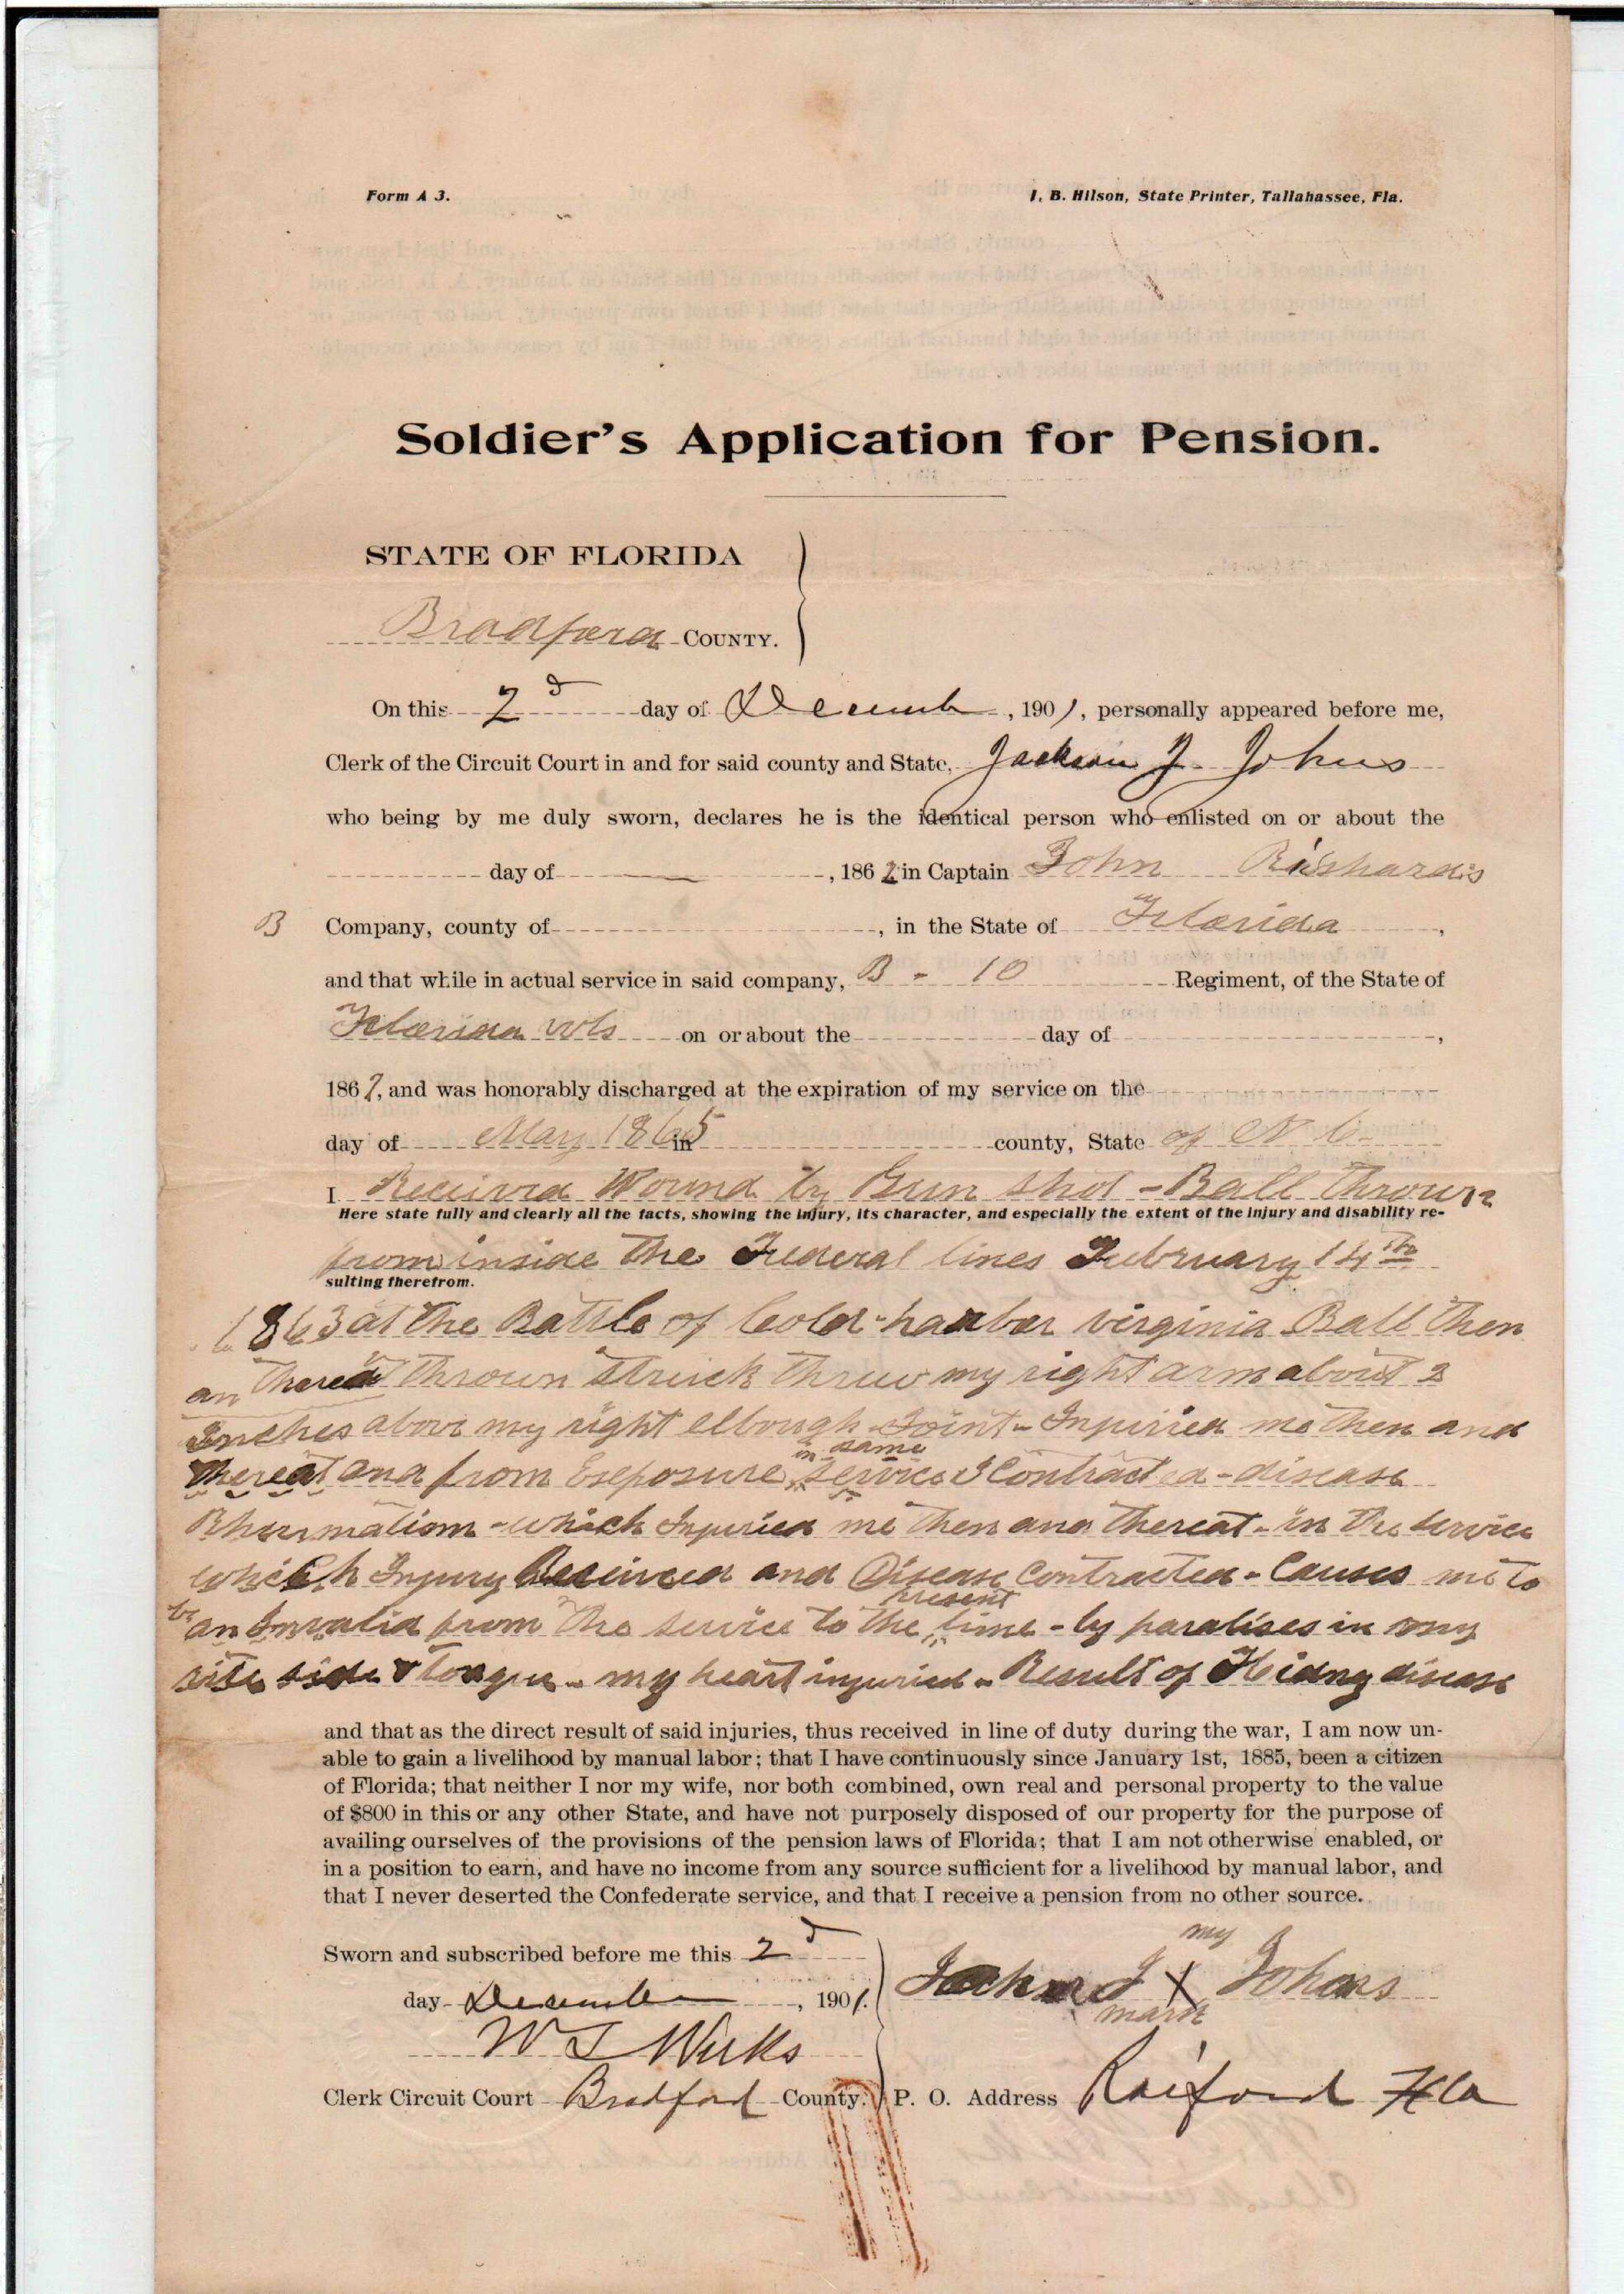 Form A 3.
I. B. Hilson, State Printer, Tallahassee, Fla.
Soldier's Application for Pension.
STATE OF FLORIDA
Bradford COUNTY.
On this 2d day of Decemb, 1901, personally appeared before me,
Clerk of the Circuit Court in and for said county and State, Jackson J. Johns
who being by me duly sworn, declares he is the identical person who enlisted on or about the
day of , 1862 in Captain John Rishards
B Company, county of , in the State of Florida,
and that while in actual service in said company, B - 10 Regiment, of the State of
Florida vols on or about the day of ,
1862, and was honorably discharged at the expiration of my service on the
day of May 1865 in county, State of N C.
I Received Wound by Gun shot - Ball thrown
Here state fully and clearly all the facts, showing the injury, its character, and especially the extent of the injury and disability re-
from inside the Federal lines February 14th
sulting therefrom.
1863 at the Battle of Cold-harbor virginia Ball then
an thereat thrown struck threw my right arm about 2
Inches above my right elbough Joint - Injuried me then and
thereat and from Exeposure in same service I Contracted - disease
Rhurmatiom - which Injuried me then and thereat - in the service
which Injury Received and Disease Contracted - Causes me to
be an Invalid from the service to the present time - by paralises in my
rite side & tongue - my heart injuried - Result of Kidny disease
and that as the direct result of said injuries, thus received in line of duty during the war, I am now un-
able to gain a livelihood by manual labor; that I have continuously since January 1st, 1885, been a citizen
of Florida; that neither I nor my wife, nor both combined, own real and personal property to the value
of $800 in this or any other State, and have not purposely disposed of our property for the purpose of
availing ourselves of the provisions of the pension laws of Florida; that I am not otherwise enabled, or
in a position to earn, and have no income from any source sufficient for a livelihood by manual labor, and
that I never deserted the Confederate service, and that I receive a pension from no other source.
Sworn and subscribed before me this 2d
my
day December, 1901.
J X Johns
mark
W S Weeks
Clerk Circuit Court Bradford County.
P. O. Address Raiford Fla